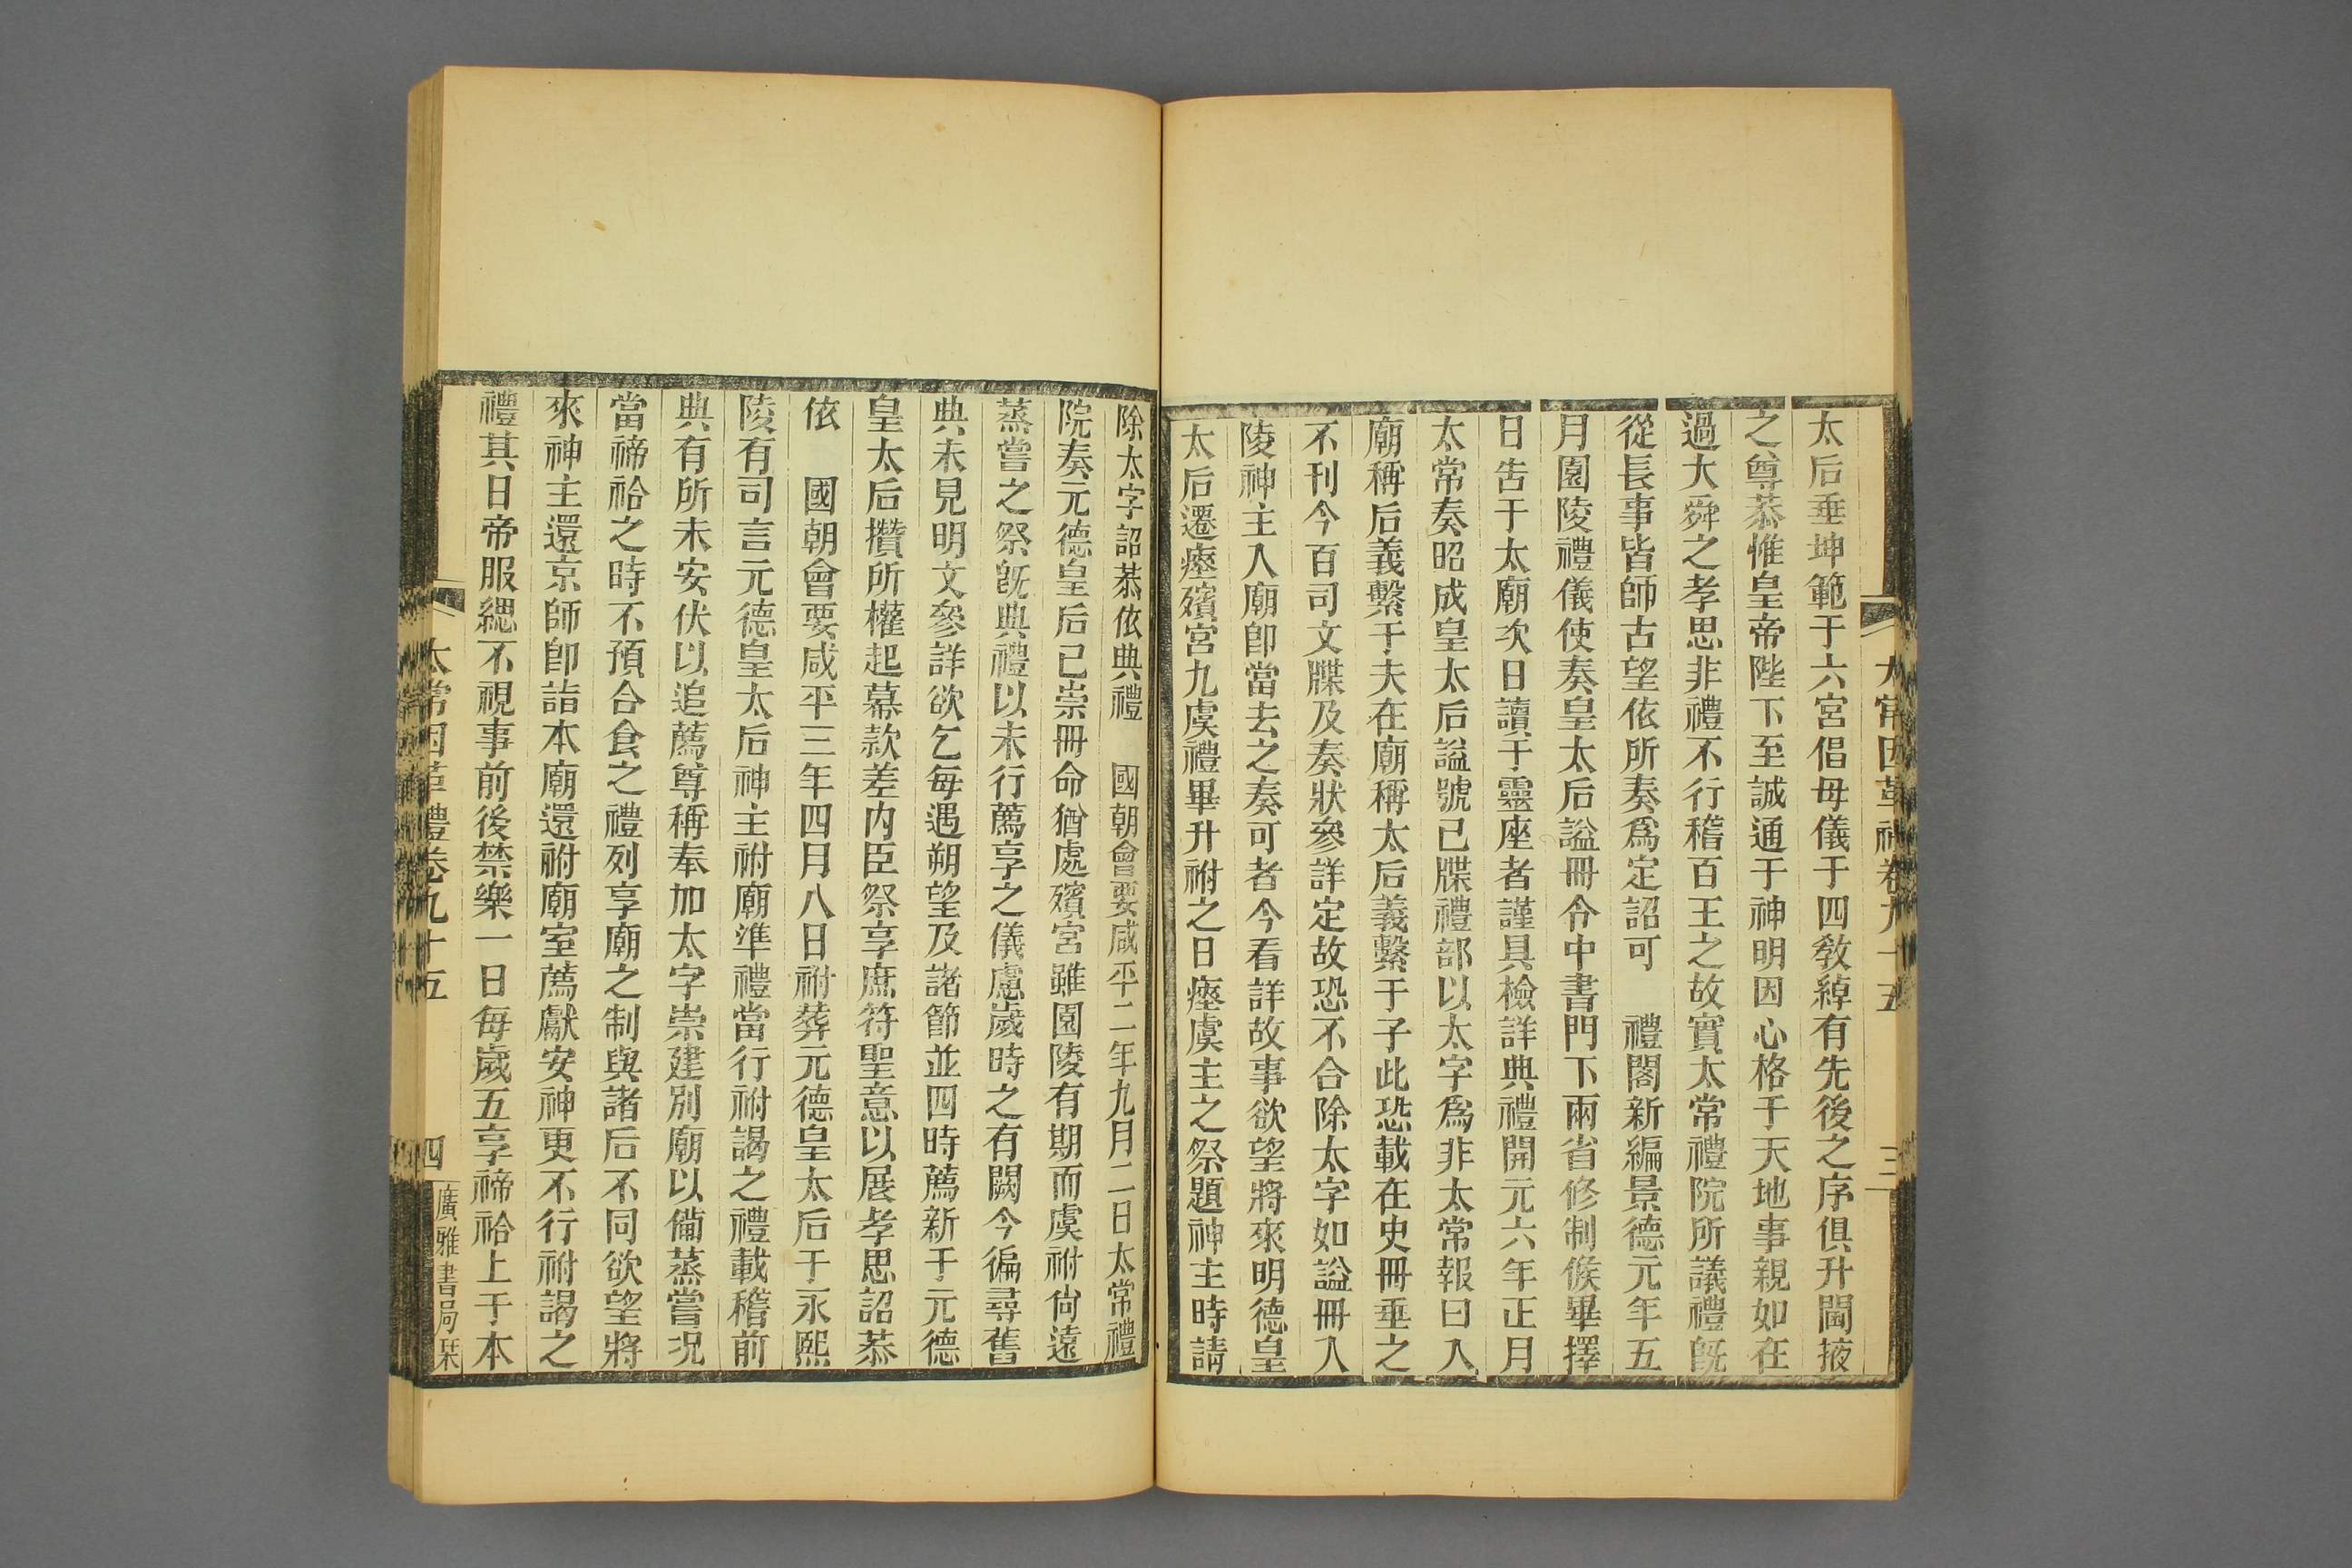 太常因革禮卷九十五
三
太后垂坤範于六宮倡母儀于四教綽有先後之序俱升閫掖
之尊恭惟皇帝陛下至誠通于神明因心格于天地事親如在
過大舜之孝思非禮不行稽百王之故實太常禮院所議禮旣
從長事皆師古望依所奏爲定詔可　禮閣新編景德元年五
月園陵禮儀使奏皇太后謚冊令中書門下兩省修制候畢擇
日告于太廟次日讀于靈座者謹具檢詳典禮開元六年正月
太常奏昭成皇太后謚號已牒禮部以太字爲非太常報曰入
廟稱后義繫于夫在廟稱太后義繫于子此恐載在史冊垂之
不刊今百司文牒及奏狀參詳定故恐不合除太字如謚冊入
陵神主入廟卽當去之奏可者今看詳故事欲望將來明德皇
太后遷瘞殯宮九虞禮畢升祔之日瘞虞主之祭題神主時請
除太字詔恭依典禮　國朝會要咸平二年九月二日太常禮
院奏元德皇后已崇冊命猶處殯宮雖園陵有期而虞祔尙遠
蒸嘗之祭旣典禮以未行薦享之儀慮歲時之有闕今徧尋舊
典未見明文參詳欲乞每遇朔望及諸節並四時薦新于元德
皇太后攢所權起幕款差內臣祭享庶符聖意以展孝思詔恭
依　國朝會要咸平三年四月八日祔葬元德皇太后于永熙
陵有司言元德皇太后神主祔廟準禮當行祔謁之禮載稽前
典有所未安伏以追薦尊稱奉加太字崇建別廟以備蒸嘗況
當禘祫之時不預合食之禮列享廟之制與諸后不同欲望將
來神主還京師卽詣本廟還祔廟室薦獻安神更不行祔謁之
禮其日帝服緦不視事前後禁樂一日每歲五享禘祫上于本
太常因革禮卷九十五
四
廣雅書局栞